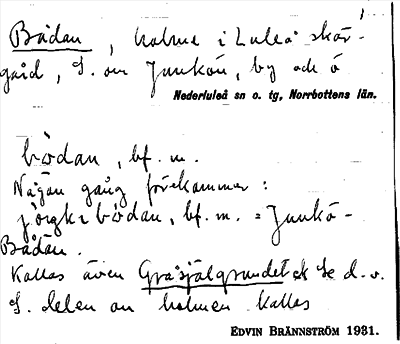 Bådan, holme i Luleå skär-
gård, S. om Junkön, by och ö
Nederluleå sn o. tg, Norrbottens län.
bödan, bf. m.
Någån gång förekommer:
bödan, bf. m. = Junkö-
Bådan.
Kallas även Gråsjälgrundet Se d. o.
S. delen av holmen kallas
EDVIN BRÄNNSTRÖM 1931.